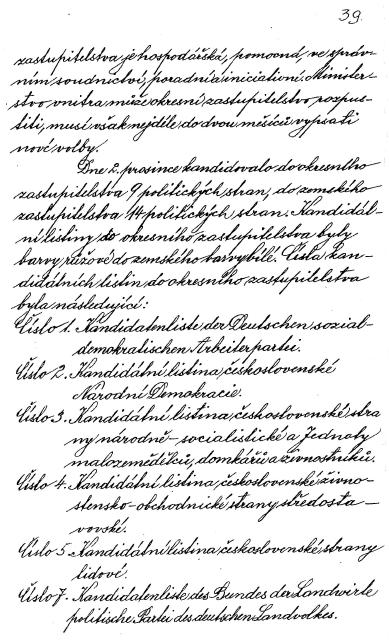 39.
zastupitelstva je hospodářská, pomocná, ve správ-
ním soudnictví, poradní a iniciativní. Minister-
stvo vnitra může okresní zastupitelstvo rozpus-
titi, musí však nejdéle do dvou měsíců vypsati
nové volby.
Dne 2. prosince kandidovalo do okresního
zastupitelstva 9 politických stran, do zemského
zastupitelstva 14 politických stran. Kandidát-
ní listiny do okresního zastupitelstva byly
barvy růžové do zemského barvy bílé. Čísla kan-
didátních listin do okresního zastupitelstva
byla následující:
Číslo 1. Kandidatenliste der Deutschen sozial-
demokratischen Arbeiterpartei.
Číslo 2. Kandidátní listina československé
Národní Demokracie.
Číslo 3. Kandidátní listina československé stra
ny národně-socialistické a Jednoty
malozemědělců, domkářů a živnostníků.
Číslo 4. Kandidátní listina československé živno-
stensko-obchodnické strany středosta-
vovské.
Číslo 5. Kandidátní listina československé strany
lidové.
Číslo 7. Kandidatenliste des Bundes der Landwirte
politische Partei des deutschen Landvolkes.